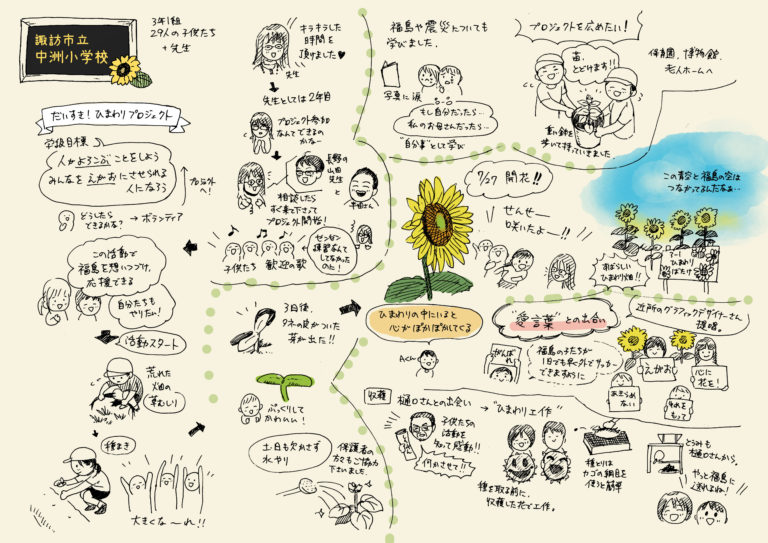 諏訪市立
中洲小学校
3年1組
29人の子供たち
+先生
だいすき!ひまわりプロジェクト
学級目標
人がよろこぶことをしよう
みんなをえがおにさせられる
人になろう
どうしたら
できるかな?→ボランティア
この活動で
福島を想いつづけ、
応援できる
自分たちも
やりたい!
活動スタート
荒れた
畑の
草むしり
種まき
大きくな〜れ!!
キラキラした
時間を
頂けました♥
先生
先生としては2年目
プロジェクト参加
なんてできるの
かな…
長野の
山田
先生
と
相談したら
すぐ来て下さって
プロジェクト開始!
子供たち 歓迎の歌
ゼンゼン
練習なんて
してなかった
のに!
3日後、
タネの皮がついた
芽が出た!!
ぷっくりして
かわいい!
土日も欠かさず
水やり
保護者の
方々もご協力
下さいました。
福島や震災についても
学びました。
写真に涙
もし自分だったら…
私のお母さんだったら…
"自分事"として学び
プロジェクトを広めたい!
苗、
とどけます!!
保育園、博物館、
老人ホームへ
重い鉢を
歩いて持っていきました
7/27 開花!!
せんせー
咲いたよー!!
この青空と福島の空は
つながってるんだなぁ…
すばらしい
ひまわり畑!!
ひまわりの中にいると
心がぽかぽかしてくる
Aくん
"愛言葉"との出会い
がんばれ
福島の友だちが
1日でも早く外でサッカー
できますように
近所のグラフィックデザイナーさん
提唱。
えがお
心に
花を!
あきらめ
ない
収穫
樋口さんとの出会い → "ひまわり工作"
子供たちの
活動を
知って感動!!
何かさせて!!
種を取る前に、
収穫した花で工作。
種とりは
カゴの網目を
使うと簡単
とうみも
樋口さんから。
やっと福島に
送れるね!